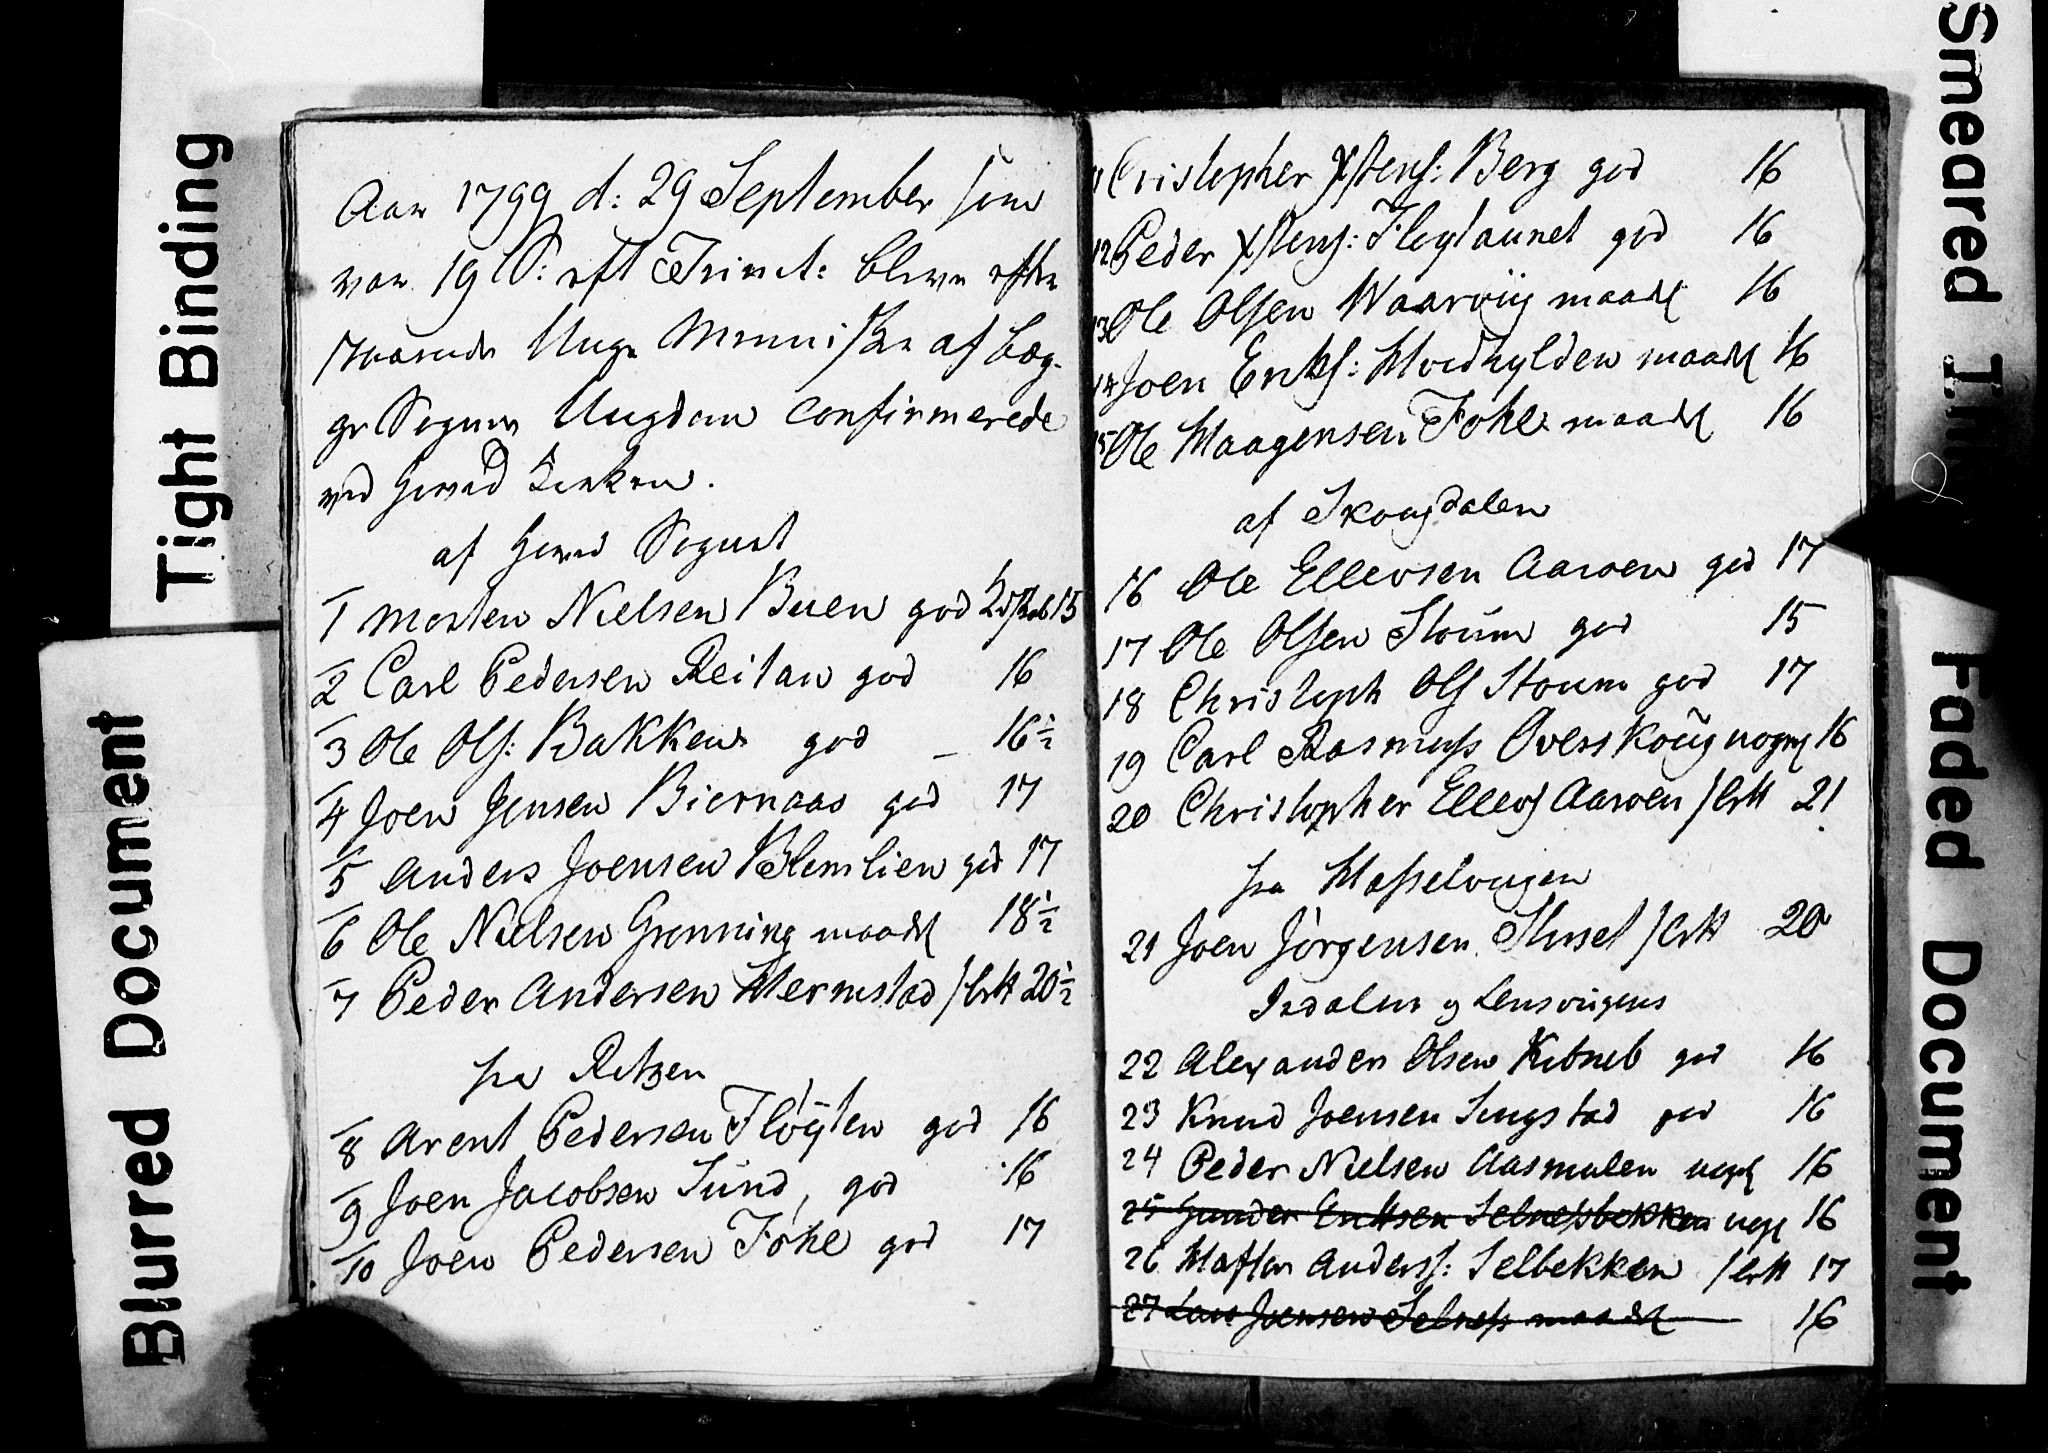 Aar 1799 d: 29 September som
var 19 S: eft Trinit: bleve efter
staaende Unge Menniske af beg-
ge Sognes Ungdom Confirmerede
ved Hevnd Kirken.
af Hevnd Sognet
1 Morten Nielsen Buen god 15
2 Carl Pedersen Reitan god 16
3 Ole Ols: Bakken god – 16½
4 Joen Jensen Biernaas god 17
5 Anders Joensen Blemlien god 17
6 Ole Nielsen Grønning maadl 18½
7 Peder Andersen Hermstad slett 20½
fra Ritzen
8 Arent Pedersen Fløÿten god 16
9 Joen Jacobsen Sund, god 16
10 Joen Pedersen Fohe god 17
11 Cristopher Xstens: Berg god 16
12 Peder Xstens: Fløytaunet god 16
13 Ole Olsen Waarviig maadl 16
14 Joen Eriks: Modhylden maadl 16
15 Ole Haagensen Fohe maadl 16
af Skougdalen
16 Ole Ellevsen Aaroen god 17
17 Ole Olsen Stoum god 15
18 Christoph Ols Stoum god 17
19 Carl Rasmuss Overskoug nogl 16
20 Christopher Ellevs Aaroen slett 21
fra Hasselvigen
21 Joen Jörgensen Sluset slett 20
Isdalen og Lensvigens
22 Alexander Olsen god 16
23 Knud Joensen Singstad god 16
24 Peder Nielsen Aasmulen nogl 16
25 Gunder Eriksen Selnessbekken nogl 16
26 Haftor Anders: Selbekken slett 17
27 Lars Joensen Selness maadl 16
Tight Binding
Blurred Document
Smeared I
Faded Document